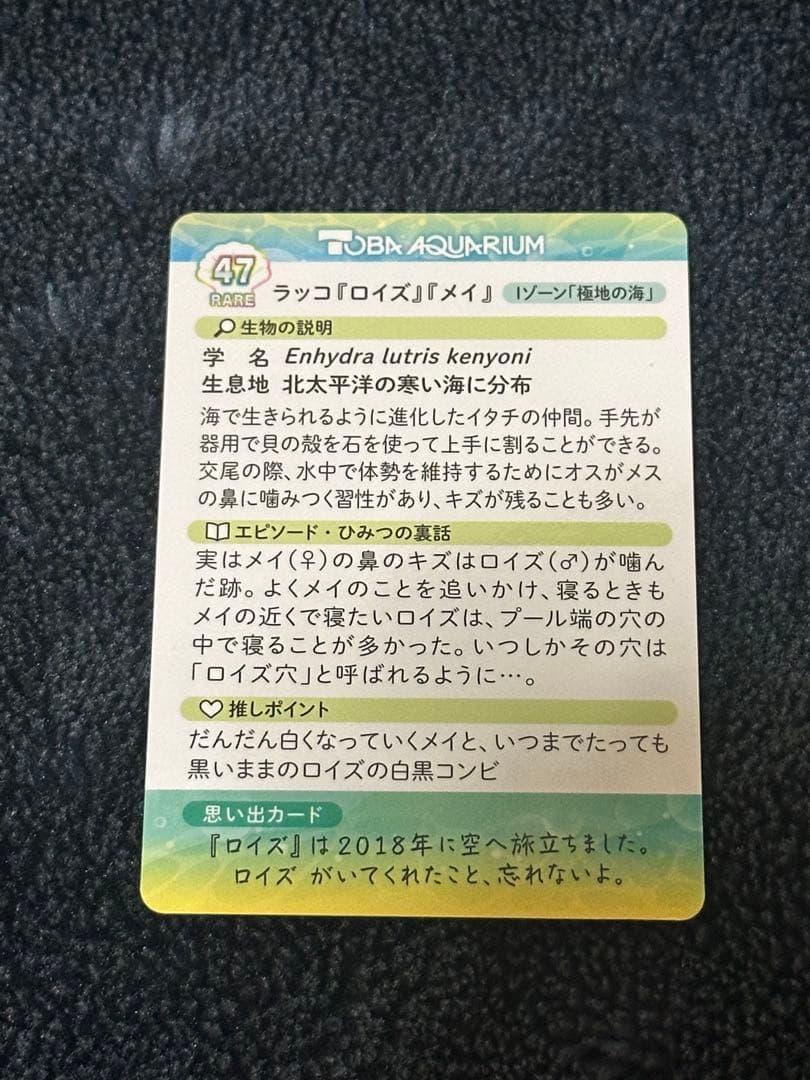 TOBA AQUARIUM
47
RARE
ラッコ『ロイズ』『メイ』 Iゾーン「極地の海」
生物の説明
学　名 Enhydra lutris kenyoni
生息地 北太平洋の寒い海に分布
海で生きられるように進化したイタチの仲間。手先が
器用で貝の殻を石を使って上手に割ることができる。
交尾の際、水中で体勢を維持するためにオスがメス
の鼻に噛みつく習性があり、キズが残ることも多い。
エピソード・ひみつの裏話
実はメイ(♀)の鼻のキズはロイズ(♂)が噛ん
だ跡。よくメイのことを追いかけ、寝るときも
メイの近くで寝たいロイズは、プール端の穴の
中で寝ることが多かった。いつしかその穴は
「ロイズ穴」と呼ばれるように…。
推しポイント
だんだん白くなっていくメイと、いつまでたっても
黒いままのロイズの白黒コンビ
思い出カード
『ロイズ』は2018年に空へ旅立ちました。
ロイズ がいてくれたこと、忘れないよ。